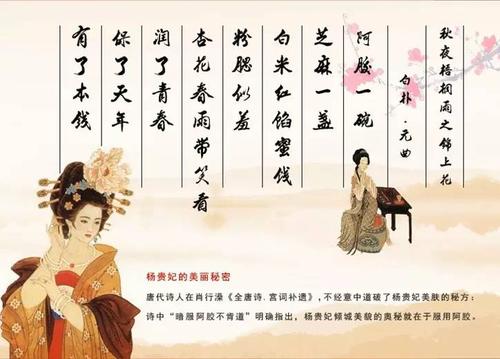 秋夜梧桐雨之锦上花
白朴·元曲
阿胶一碗
芝麻一盏
白米红馅蜜饯
粉腮似羞
杏花春雨带笑看
润了青春
保了天年
有了本钱
杨贵妃的美丽秘密
唐代诗人在肖行澡《全唐诗.宫词补遗》,不经意中道破了杨贵妃美肤的秘方:
诗中“暗服阿胶不肯道”明确指出,杨贵妃倾城美貌的奥秘就在于服用阿胶。